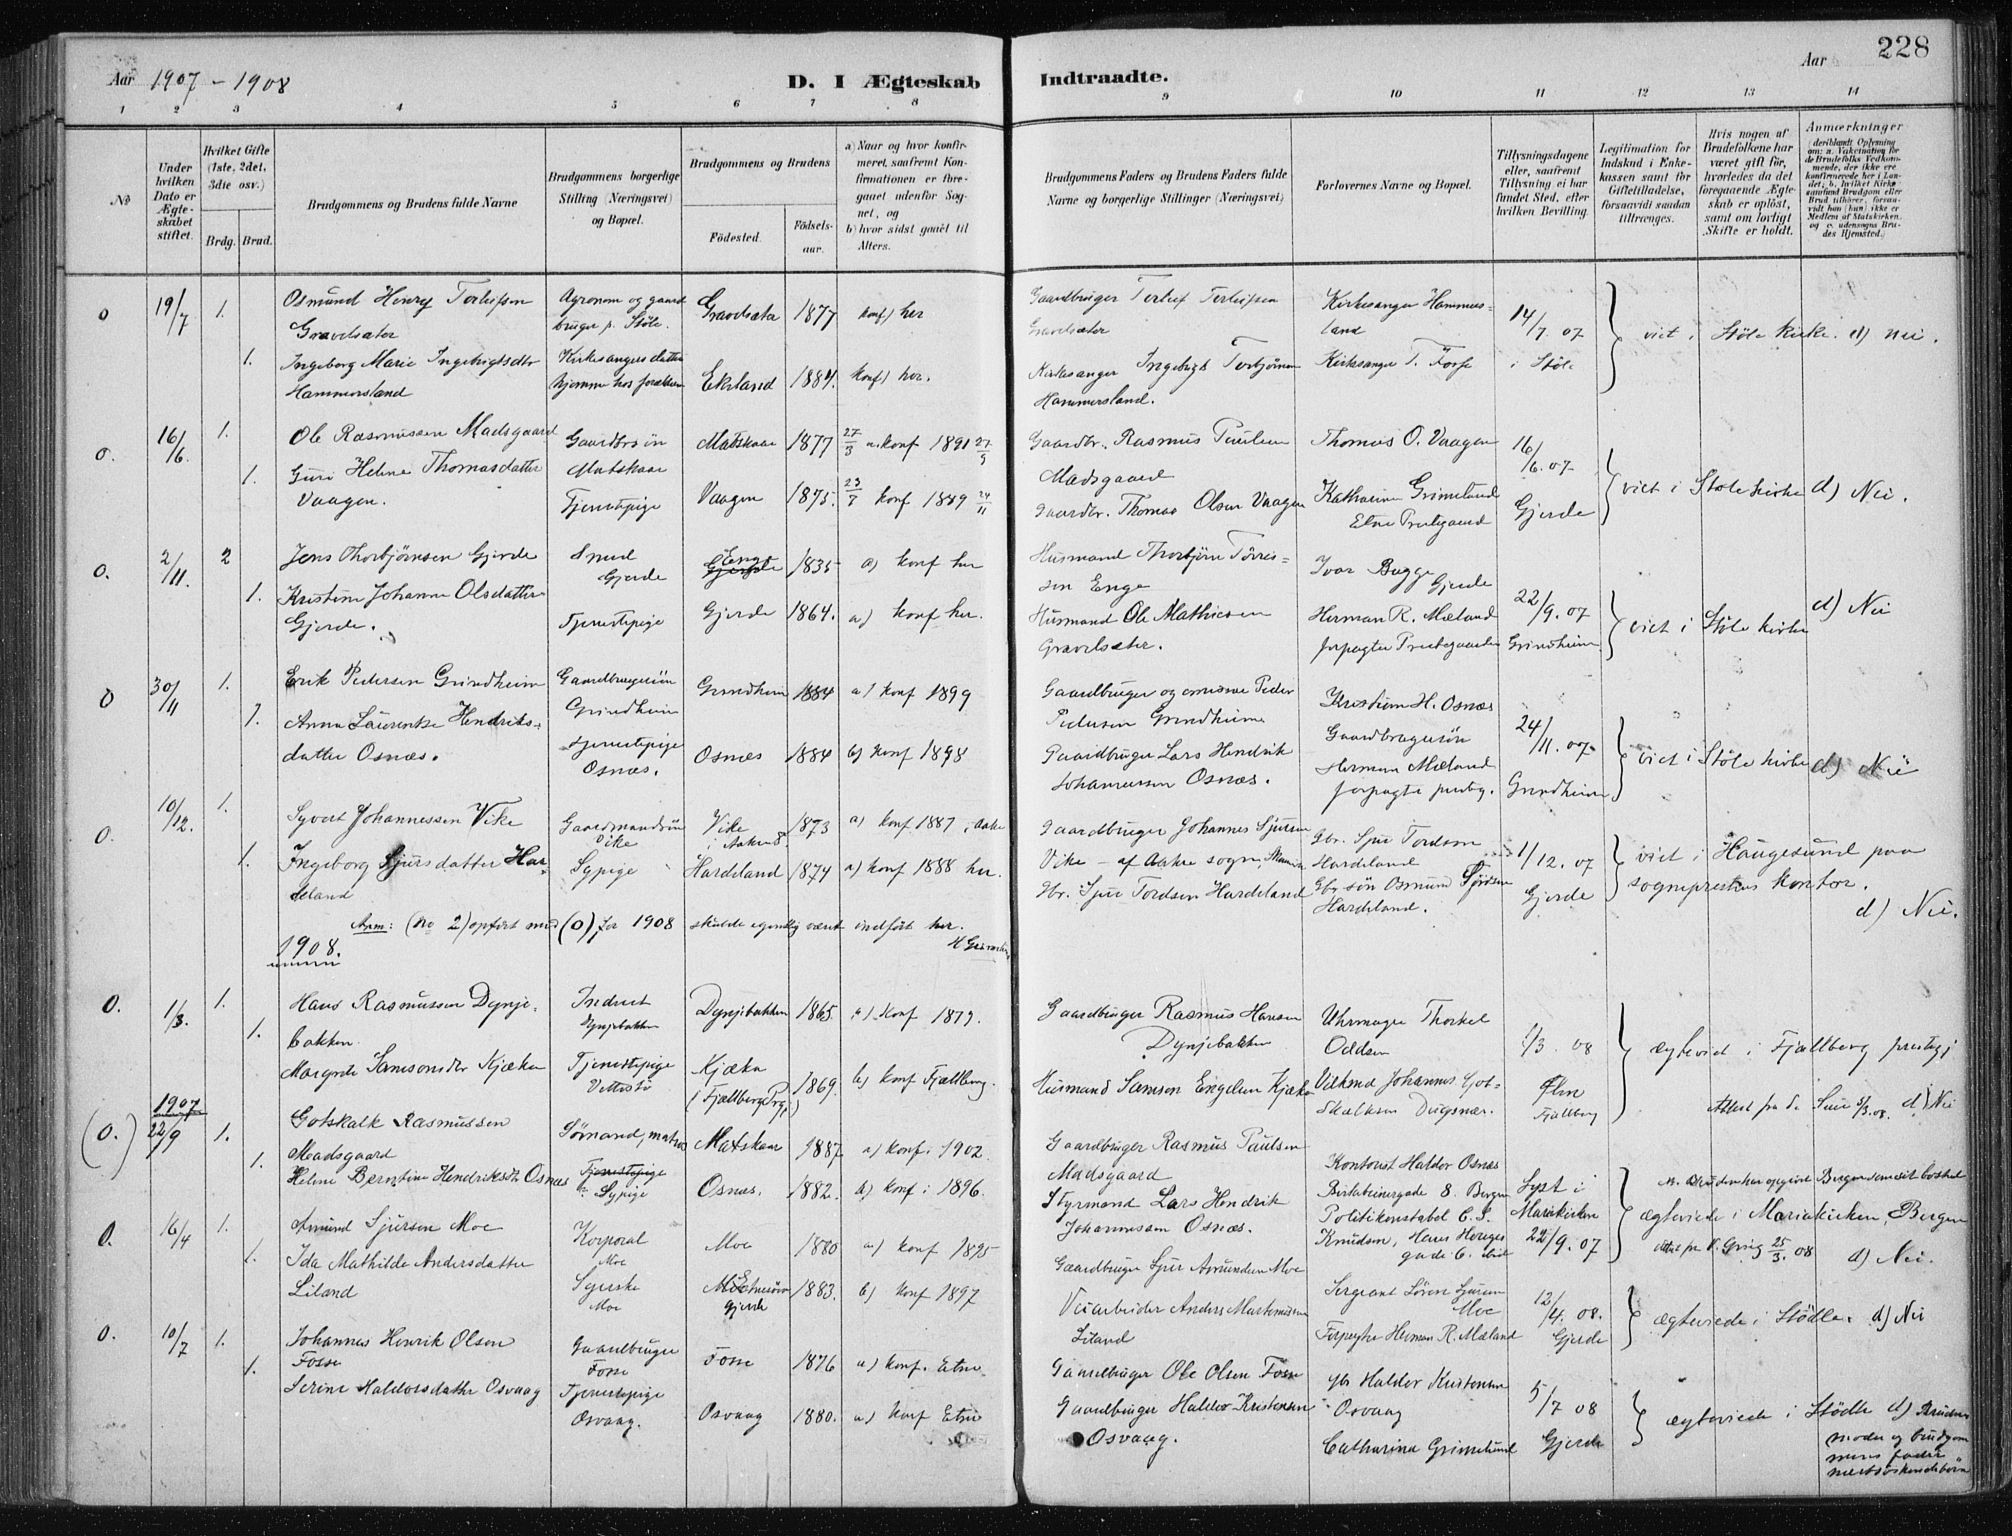 Aar 1907 - 1908
D. I Ægteskab Indtraadte.
Aar 228
1 2 3 4 5 6 7 8 9 10 11 12 13 14
No
Under hvilken Dato er Ægteskabet stiftet.
Hvilket Gifte (1ste, 2det, 3die osv.)
Brdg. Brud.
Brudgommens og Brudens fulde Navne
Brudgommens borgerlige Stilling (Næringsvei) og Bopæl.
Brudgommens og Brudens
Fødested.
Fødsels-aar.
a) Naar og hvor konfirmeret, saafremt Konfirmationen er foregaaet udenfor Sognet, og
b) hvor sidst gaaet til Alters.
Brudgommens Faders og Brudens Faders fulde Navne og borgerlige Stillinger (Næringsvei)
Forlovernes Navne og Bopæl.
Tillysningsdagene eller, saafremt Tillysning ei har fundet Sted, efter hvilken Bevilling.
Legitimation for Indskud i Enkekassen samt for Giftetilladelse, forsaavidt saadan tiltrænges.
Hvis nogen af Brudefolkene har været gift før, hvorledes da det foregaaende Ægteskab er opløst, samt om lovligt Skifte er holdt.
Anmærkninger
o 19/7 1. Osmund Henry Gravelsæter
Agronom og gaardbruger p. Støle. Gravelsæter 1877 konf) her
Gaardbruger Gravelsæter
Kirkesanger Hammersland
14/7. 07 i Støle
viet i Støle Kirke. d) nei.
1. Ingeborg Marie Ingebrigtsdtr Hammersland
Kirkesangers datter hjemme hos forældrene Ekrland 1884. konf) her.
Kirkesanger Ingebrigt Hammersland.
Kirkesanger T. Fosse
o. 16/6. 1. Ole Rasmussen Madsgaard
Gaardbrsøn Matskaar Matskaar 1877 27/3 a. konf 1891 27/9
Gaardbr. Rasmus Paulsen Madsgaard
Thomas O. Vaagen
16/6. 07 Gjerde
viet i Støle kirke d) Nei.
1. Guri Helene Thomasdatter Vaagen.
Tjenestepige Vaagen 1875. konf 1889 24/11
Gaardbr. Thomas Olsen Vaagen
Katharina Grimeland Etne Prestgaard
o. 2/11. 2 Jens Thorbjørnsen Gjerde
Smed Gjerde Enge 1835 a) konf her
Husmand Thorbjørn Tørressen Enge
Ivar Bugge Gjerde
22/9. 07 Grindheim
viet i Støle kirke d) Nei
1. Kristine Johanne Olsdatter Gjerde.
Tjenestepige Gjerde 1864. a) konf her.
Husmand Ole Mathiesen Gravelsæter.
Herman R. Mæland forpagter Prestegaarden
o 30/11 1. Erik Pedersen Grindheim
Gaardbrugersøn Grindheim Grindheim 1884 a) konf 1899
Gaardbruger og Peder Pedersen Grindheim
Kristian H. Osnæs Gaardbrugersøn
24/11. 07 Grindheim
viet i Støle kirke d) Nei
1. Anna Laurentse Hendriksdatter Osnæs.
Tjenestepige Osnæs. Osnæs 1884 b) konf 1898
Gaardbruger Lars Hendrik Johannessen Osnæs.
Herman Mæland forpagter prestg.
o. 10/12. 1. Syvert Johannessen Vike
Gaardmandssøn Vike Vike i Aakre S. 1873 a) konf 1887 i Aakre
Gaardbruger Johannes Sjursen Vike – af Aakre sogn
Gbr. Sjur Tordsen Hardeland
1/12. 07 Gjerde
viet i Haugesund paa sogneprestens kontor. d) Nei.
1. Ingeborg Sjursdatter Hardeland
Sypige Hardeland 1874 a) konf 1888 her.
Gbr. Sjur Tordsen Hardeland
Gbr søn Osmund Sjursen Hardeland.
Anm: (no 2) opført med (o) for 1908 skulde egentlig været indført her.
1908.
o. 1/3. 1. Hans Rasmussen Dynjebakken
Indrest Dynjebakken Dynjebakken 1865 a) konf 1879.
Gaardbruger Rasmus Hansen Dynjebakken
Uhrmager Thorkel Oddsen
1/3. 08 Ølen Fjælberg
ægteviet i Fjællberg prestegj
1. Margrete Samsonsdtr Kjæka
Tjenestepige Kjæka (Fjællberg Prgj) 1869. b) konf Fjællberg.
Husmand Samson Engelsen Kjæka
Johannes Gotskalksen Dugsnæs.
Attest fra S. 5/3. 08. d) Nei
(o.) 1907 22/9 1. Gotskalk Rasmussen Madsgaard
Sømand, matros Matskaar 1887 a) konf. i 1902.
Gaardbruger Rasmus Paulsen Madsgaard
Kontorist Haldor Osnæs gade 8. Bergen
Lyst i Mariakirken 22/9. 07
ægteviede i Mariakirken, Bergen d) Nei.
1. Helene Berntine Hendriksdtr Osnæs
Tjenestepige Sypige Osnæs. 1882. b) konf. i 1896.
Styrmand Lars Hendrik Johannessen Osnæs.
Politikonstabel C. S. Knudsen, Hans Hauges gade 6. ibid
o. 16/4 1. Amund Sjursen Moe
Korporal Moe Moe 1880 a) konf 1895
Gaardbruger Sjur Amundsen Moe
Sergeant Sören Sjursen Moe
12/4. 08. Gjerde
ægteviede i Stødle. d) Nei
1. Ida Mathilde Andersdatter Liland
Syerske Moe Gjerde 1883. b) konf 1897
Veiarbeider Anders Liland
Forpagter Herman R. Mæland
o. 10/7 1. Johannes Henrik Olsen Fosse
Gaardbruger Fosse Fosse 1876 a) konf. Etne
Gaardbruger Ole Olsen Fosse
gbr Haldor Kristensen Osvaag
5/7 08 Gjerde
ægteviede i Stødle d) Brudens moder og brudgommens fader næstsøskendebørn
1. Serine Haldorsdatter Osvaag
Tjenestepige Osvaag. Osvaag 1880. a) konf Etne
Gaardbruger Haldor Kristensen Osvaag.
Catharina Grimelund